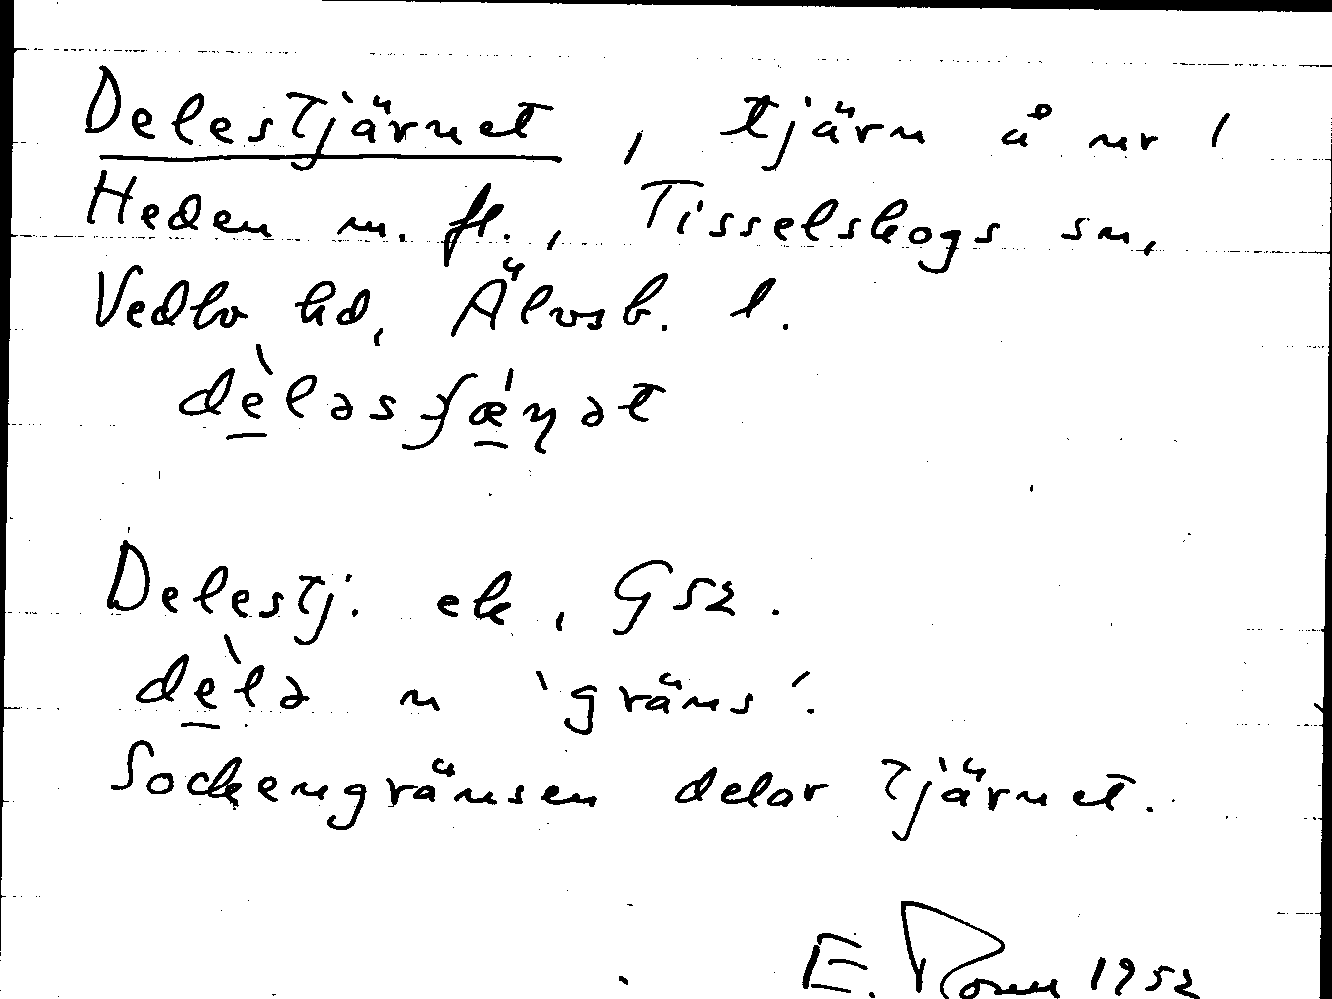 Delestjärnet, tjärn å nr 1
Heden m. fl., Tisselskogs sn,
Vedbo hd, Älvsb. l.
Delestj. ek, G52.
dèlə n 'gräns'.
Sockengränsen delar tjärnet.
E. 1952